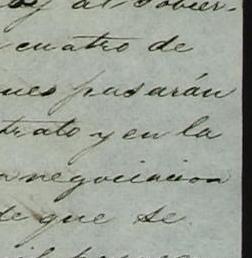 y al Gobier-
cuatro de
ues pasarán
trato y en la
negociacion
de que se